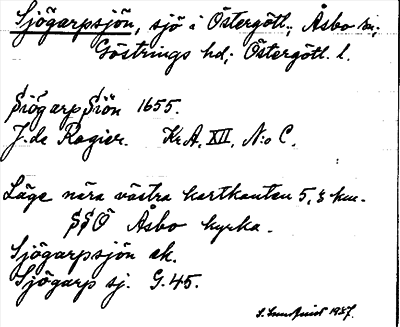 Sjögarpsjön, sjö i Östergötl.; Åsbo sn;
Göstrings hd; Östergötl. l.
SiögarpSiön 1655.
J. de Rogier. Kr.A, XII, N:o C.
Läge nära västra kartkanten 5,8 km.
SSÖ Åsbo kyrka.
Sjögarpsjön ek.
Sjögarp sj. G.45.
S. 1937.